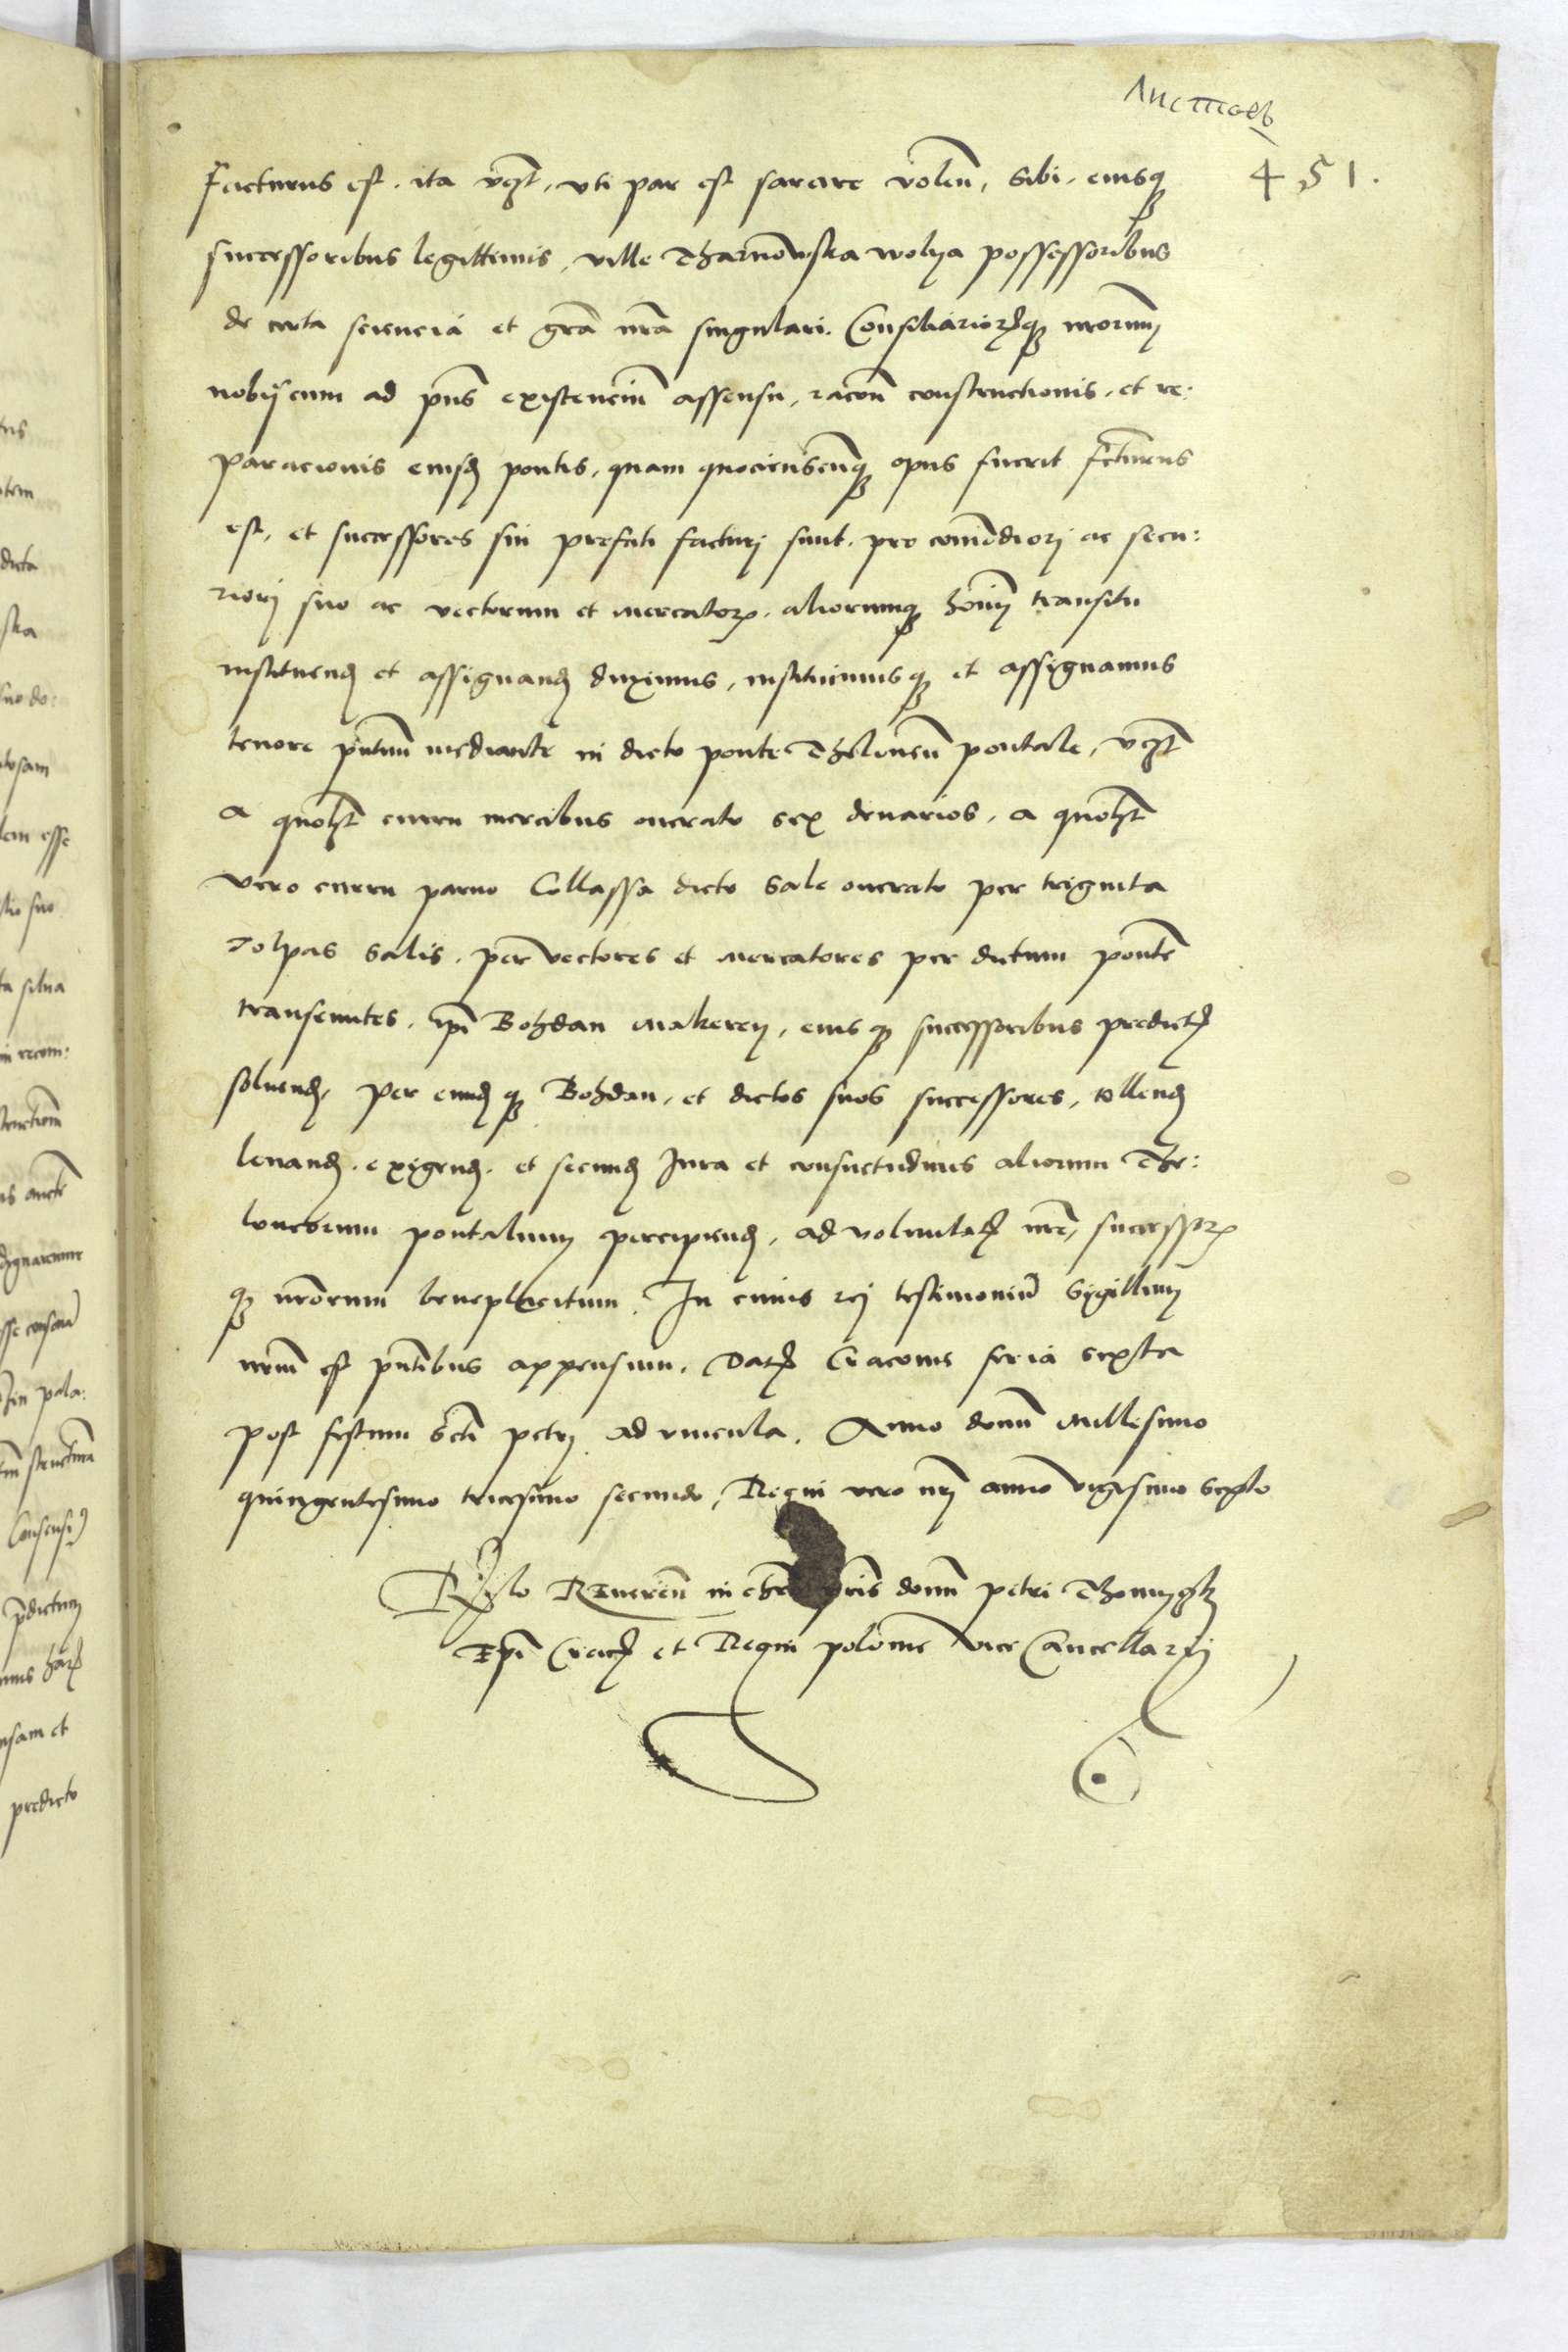 Листовъ
451.
facturus est. ita vҙt. vti par est sarcire volen̄, sibi. eiusqꝫ
successoribus legittimis, ville Tharnowska wolya possessoribus
de certa sciencia et gr̄a nr̄a singulari. Consiliariorꝫqꝫ nr̄orum
nobiscum ad pn̄s existenciū assensu, racōn constructionis. et re:
paracionis eiusdꝫ pontis, quam quociescūqꝫ opus fuerit fcturus
est, et successores sui prefati facturi sunt. pro com̄odiori ac secu:
riori suo ac vectorum et mercatorꝝ. aliorumqꝫ hoīm transitu
instituendꝫ et assignandꝫ duximus, instituimusqꝫ et assignamus
tenore pn̄tium mediante in dicto ponte Theloneū pontale, vҙt
a quolꝫt curru mercibus onerato sex denarios. a quolꝫt
vero curru paruo Collassa dicto sale onerato per triginta
Tolpas salis. per vectores et mercatores per dictum pontē
transeuntes. ip̄i Bohdan Makerey, eiusqꝫ successoribus predictꝫ
soluendꝫ, per eundꝫqꝫ Bohdan, et dictos suos successores, tollendꝫ
leuandꝫ. exigendꝫ. et secundꝫ Jura et consuetudinis aliorum The:
loneorum pontalium percipiendꝫ, ad voluntatꝫ nr̄e, successorꝝ
qꝫ nr̄orum beneplacitum. In cuius rei testimoniū Sigillum
nrm̄ est pn̄tibus appensum. Datꝫ Cracouie feria sexta
post festum Scti petri ad vincula. Anno domī Millesimo
quingentesimo tricesimo secundo, Regni vero nr̄i anno vigesimo sexto
Rēlo Reuereñ in chr̄o pr̄is domī petri Thomyczkꝫ
Ep̄i Cracꝫ et Regni polonie Vice Cancellarii